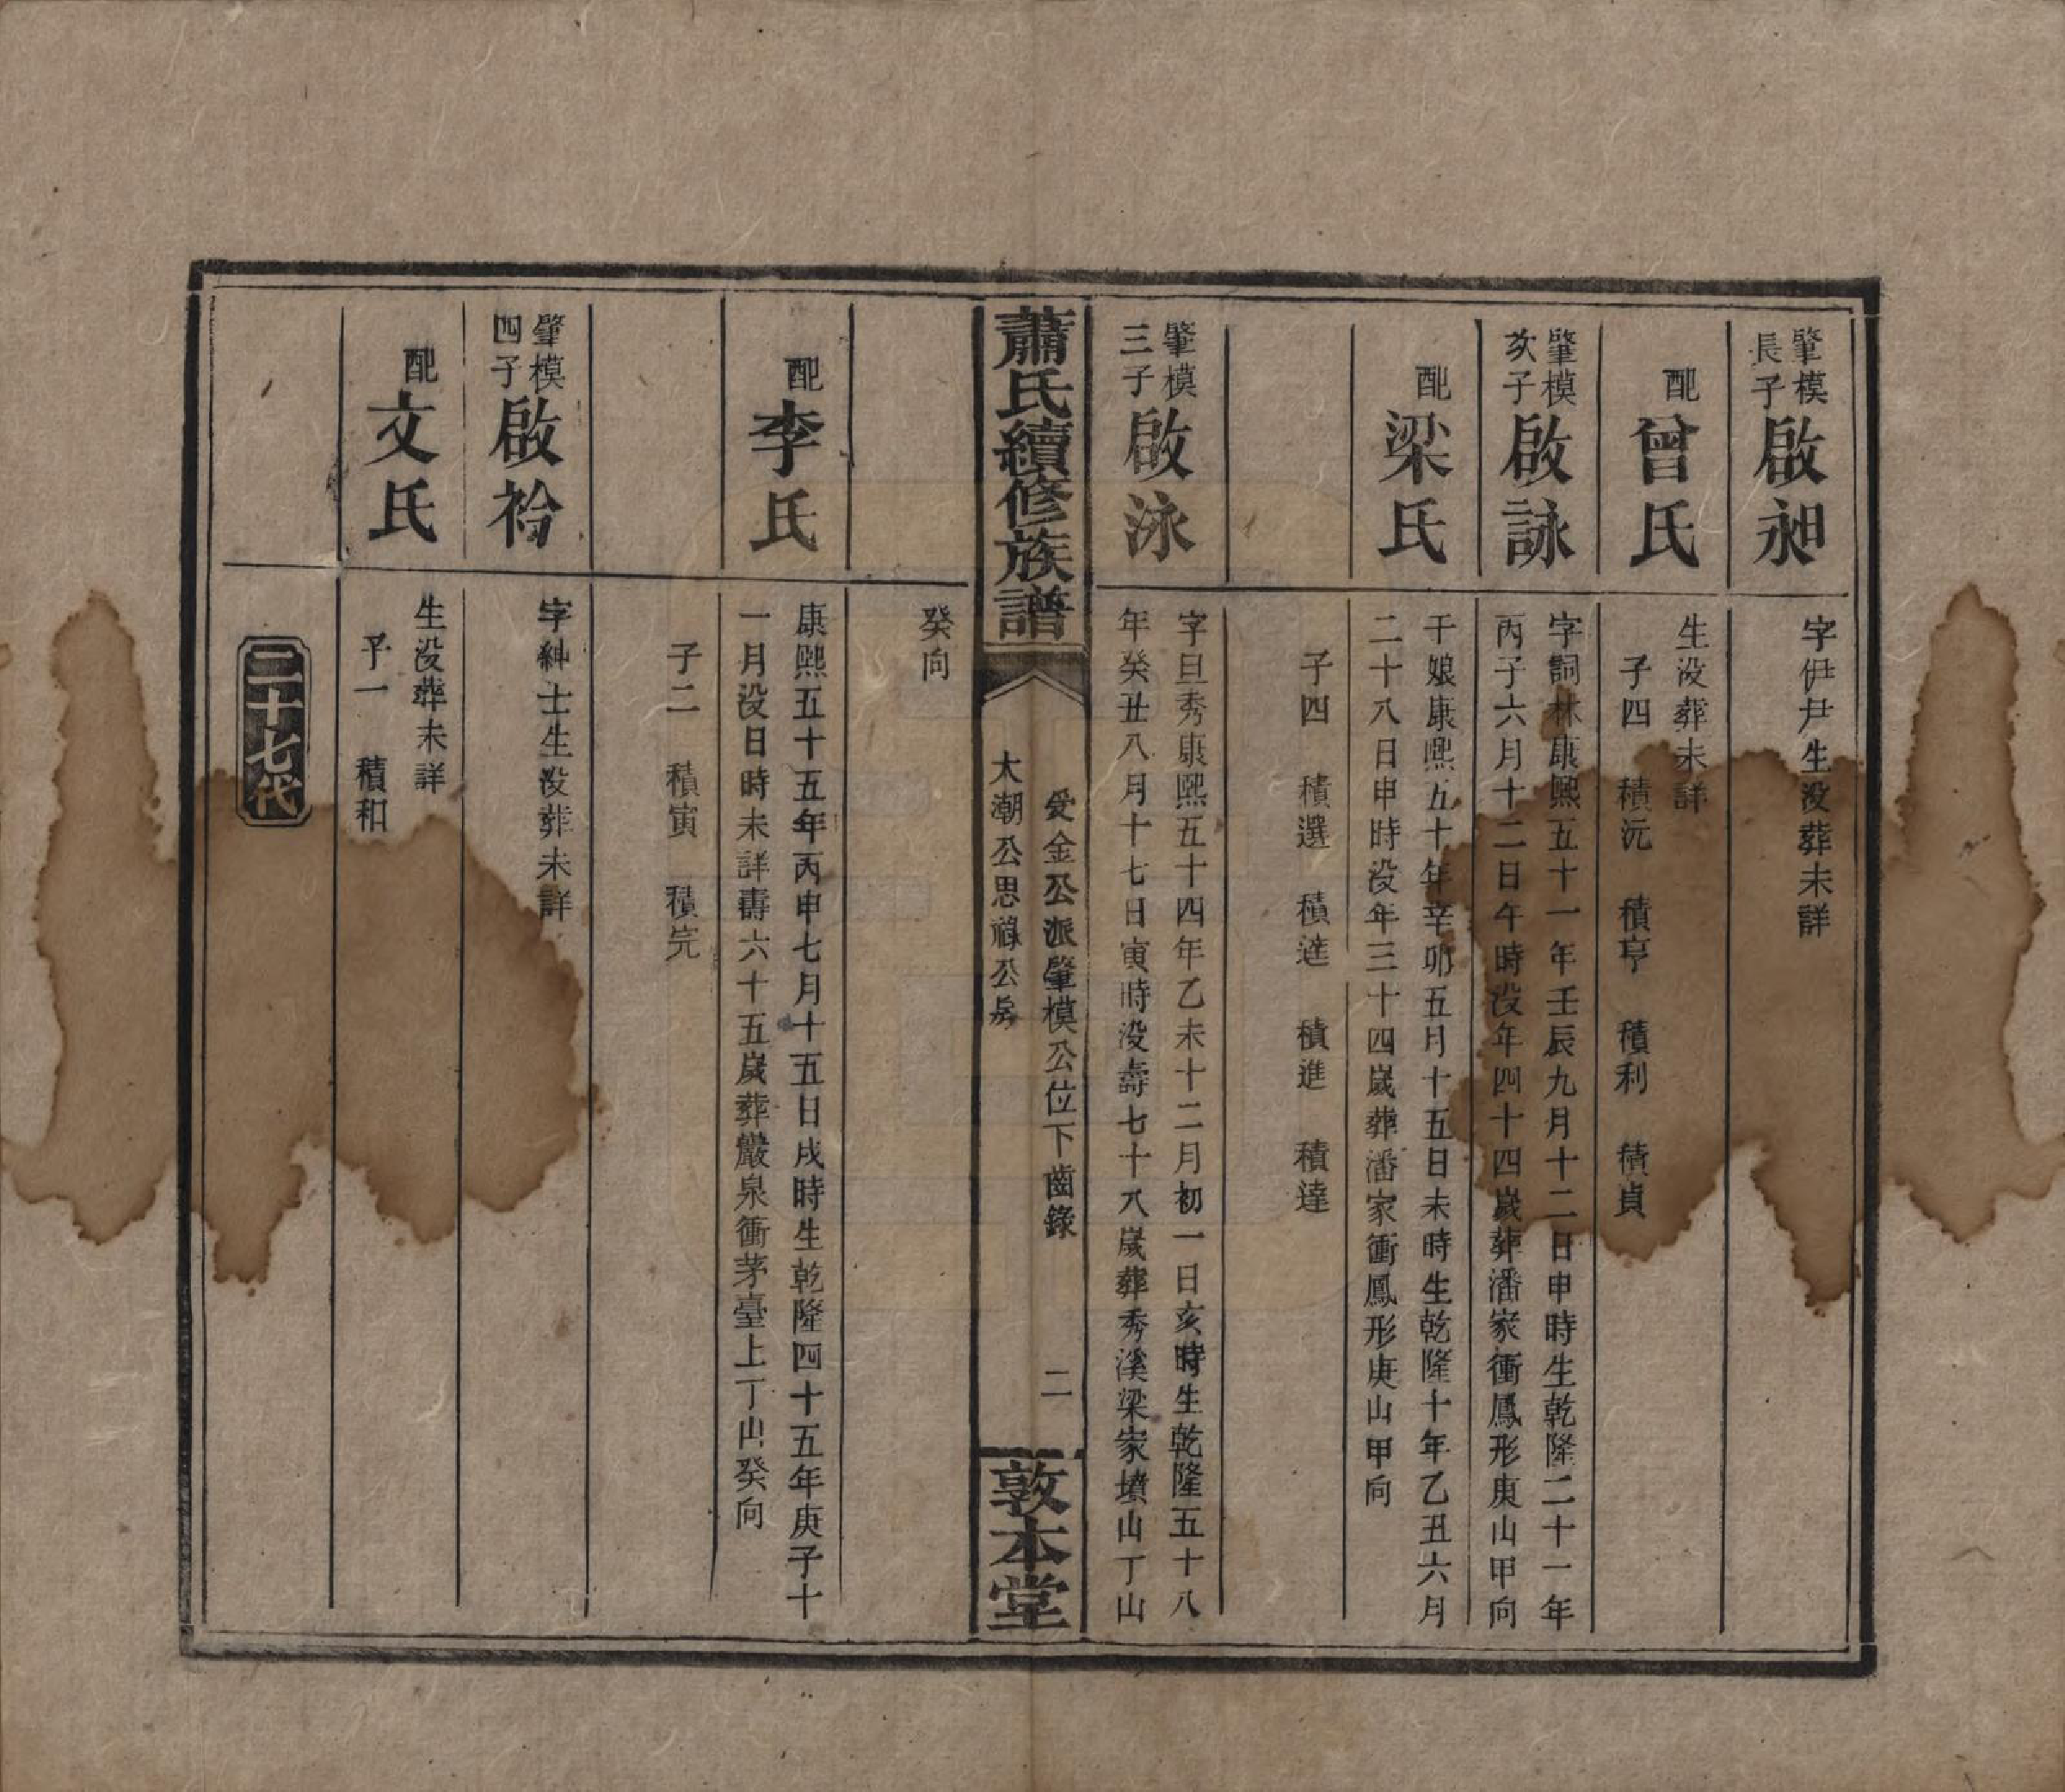 肇模
長子
啟昶
字伊尹生没葬未詳
配
曾氏
生没葬未詳
子四 積沅 積亨 積利 積貞
肇模
次子
啟詠
字詞林康熙五十一年壬辰九月十二日申時生乾隆二十一年
丙子六月十二日午時没年四十四歲葬潘家衝鳳形庚山甲向
配
梁氏
干娘康熙五十年辛卯五月十五日未時生乾隆十年乙丑六月
二十八日申時没年三十四歲葬潘家衝鳳形庚山甲向
子四 積選 積逹 積進 積達
肇模
三子
啟泳
字旦秀康熙五十四年乙未十二月初一日亥時生乾隆五十八
年癸丑八月十七日寅時没壽七十八歲葬秀溪梁家墳山丁山
蕭氏續修族譜
受金公派肇模公位下齒錄
大潮公思祿公房
二
敦本堂
癸向
配
李氏
康熙五十五年丙申七月十五日戌時生乾隆四十五年庚子十
一月没日時未詳壽六十五歲葬巖泉衝茅臺上丁山癸向
子二 積寅 積完
肇模
四子
啟衿
字紳士生没葬未詳
配
文氏
生没葬未詳
子一 積和
二十七代